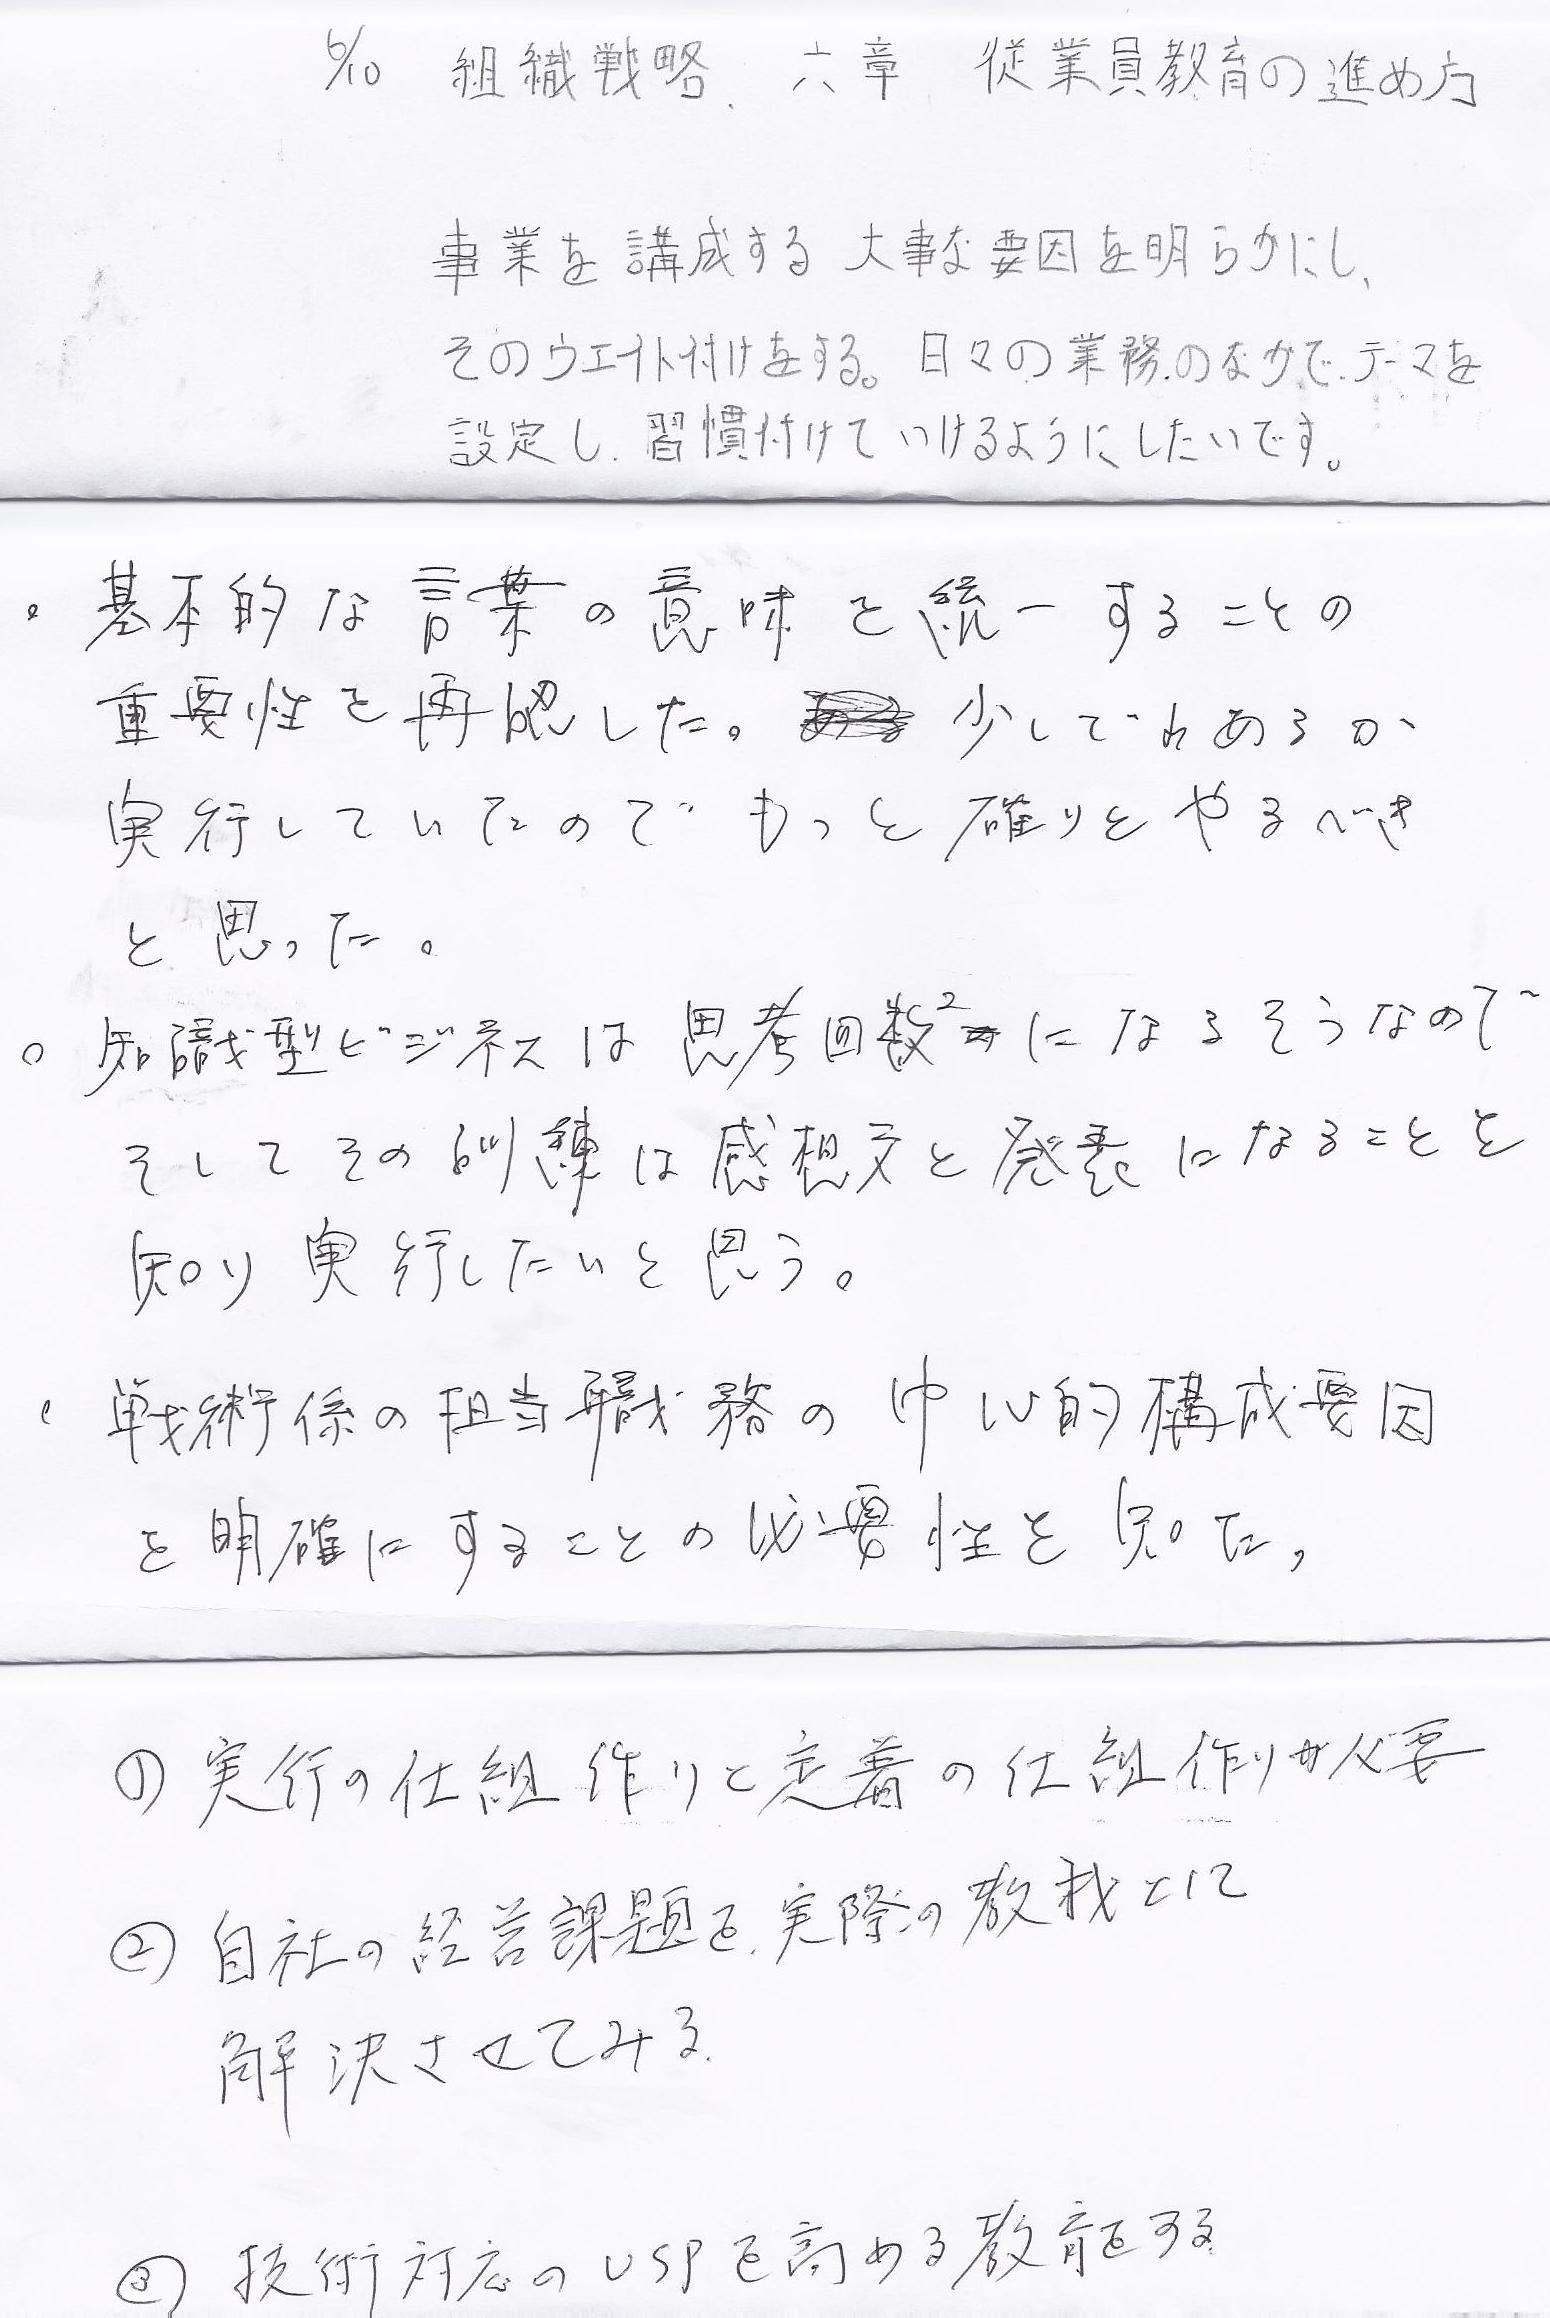 6/10 組織戦略、六章 従業員教育の進め方
事業を講成する大事な要因を明らかにし、
そのウエイト付けをする。日々の業務のなかで、テーマを
設定し、習慣付けていけるようにしたいです。
・基本的な言葉の意味を統一することの
重要性を再認した。少しでわあるが
実行していたのでもっと確りとやるべき
と思った。
○知識型ビジネスは思考回数²になるそうなので
そしてその訓練は感想文と発表になることを
知り実行したいと思う。
・戦術係の担当職務の中心的構成要因
を明確にすることの必要性を知った。
① 実行の仕組作りと定着の仕組作りが必要
② 自社の経営課題を、実際の教材として
解決させてみる。
③ 技術対応のUSPを高める教育をする